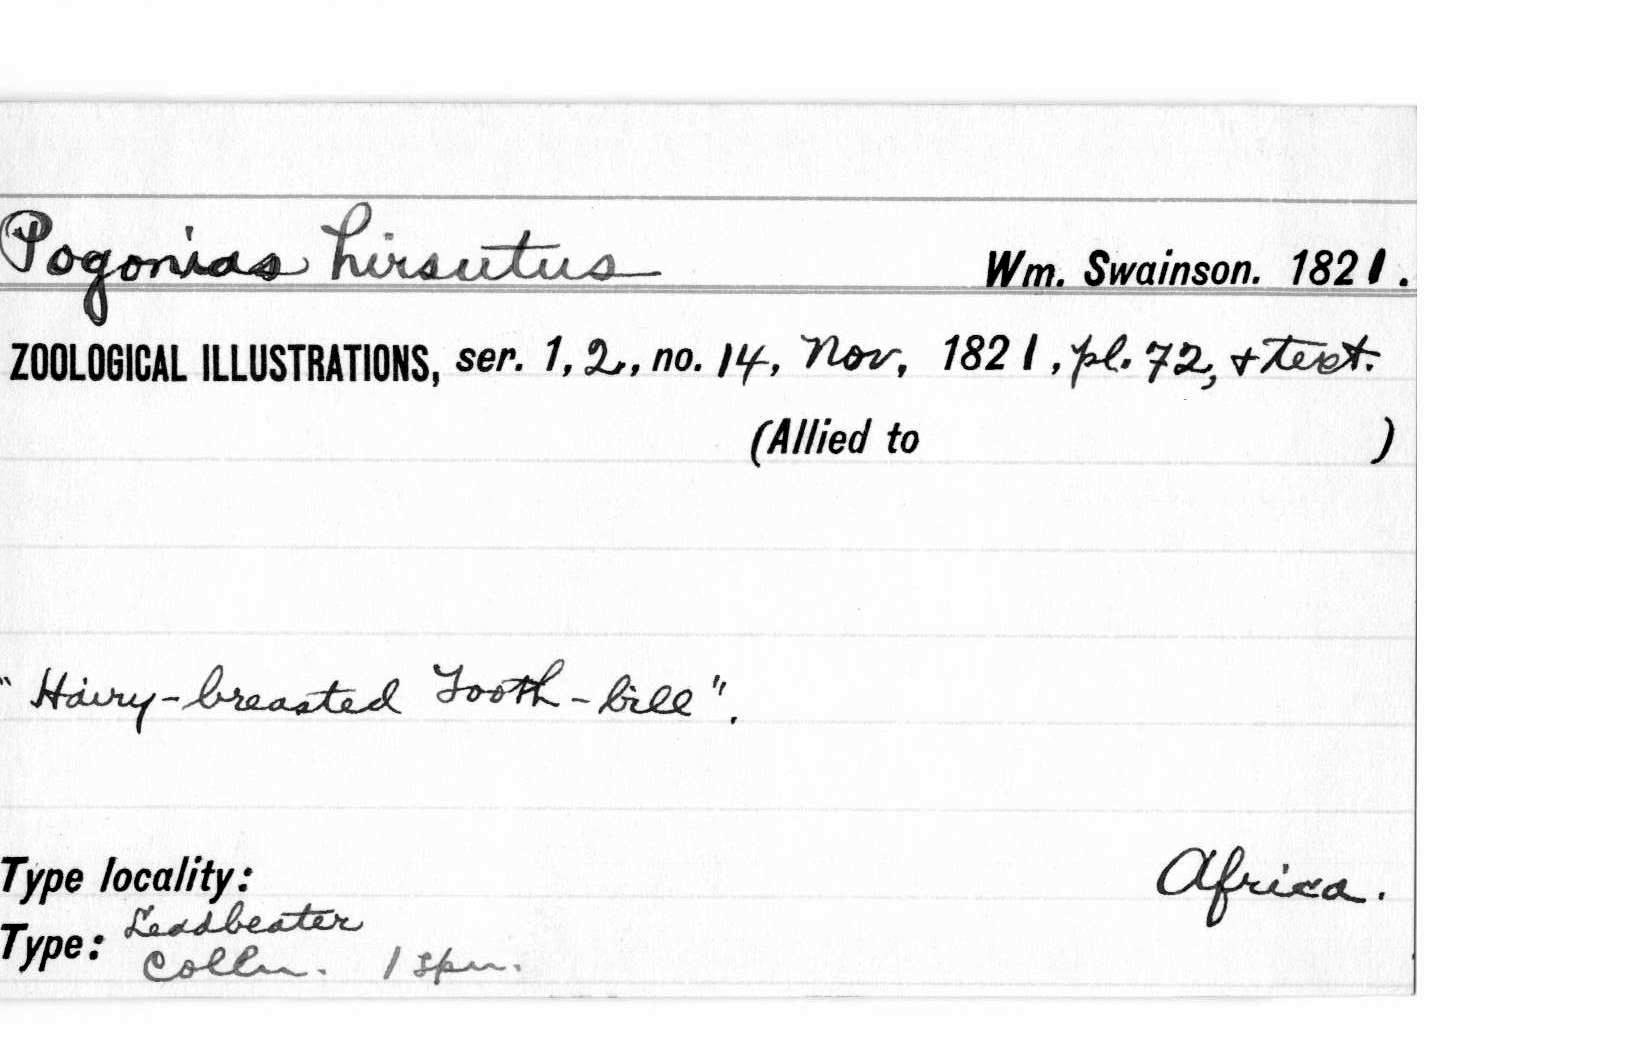 Pogonias hirsutus Wm. Swainson. 1821.
ZOOLOGICAL ILLUSTRATIONS, ser. 1, 2, no. 14, Nov, 1821, pl. 72, + text.
(Allied to )
"Hairy-breasted Tooth-bill".
Type locality: Africa.
Type: Leadbeater
Colln. 1 spn.